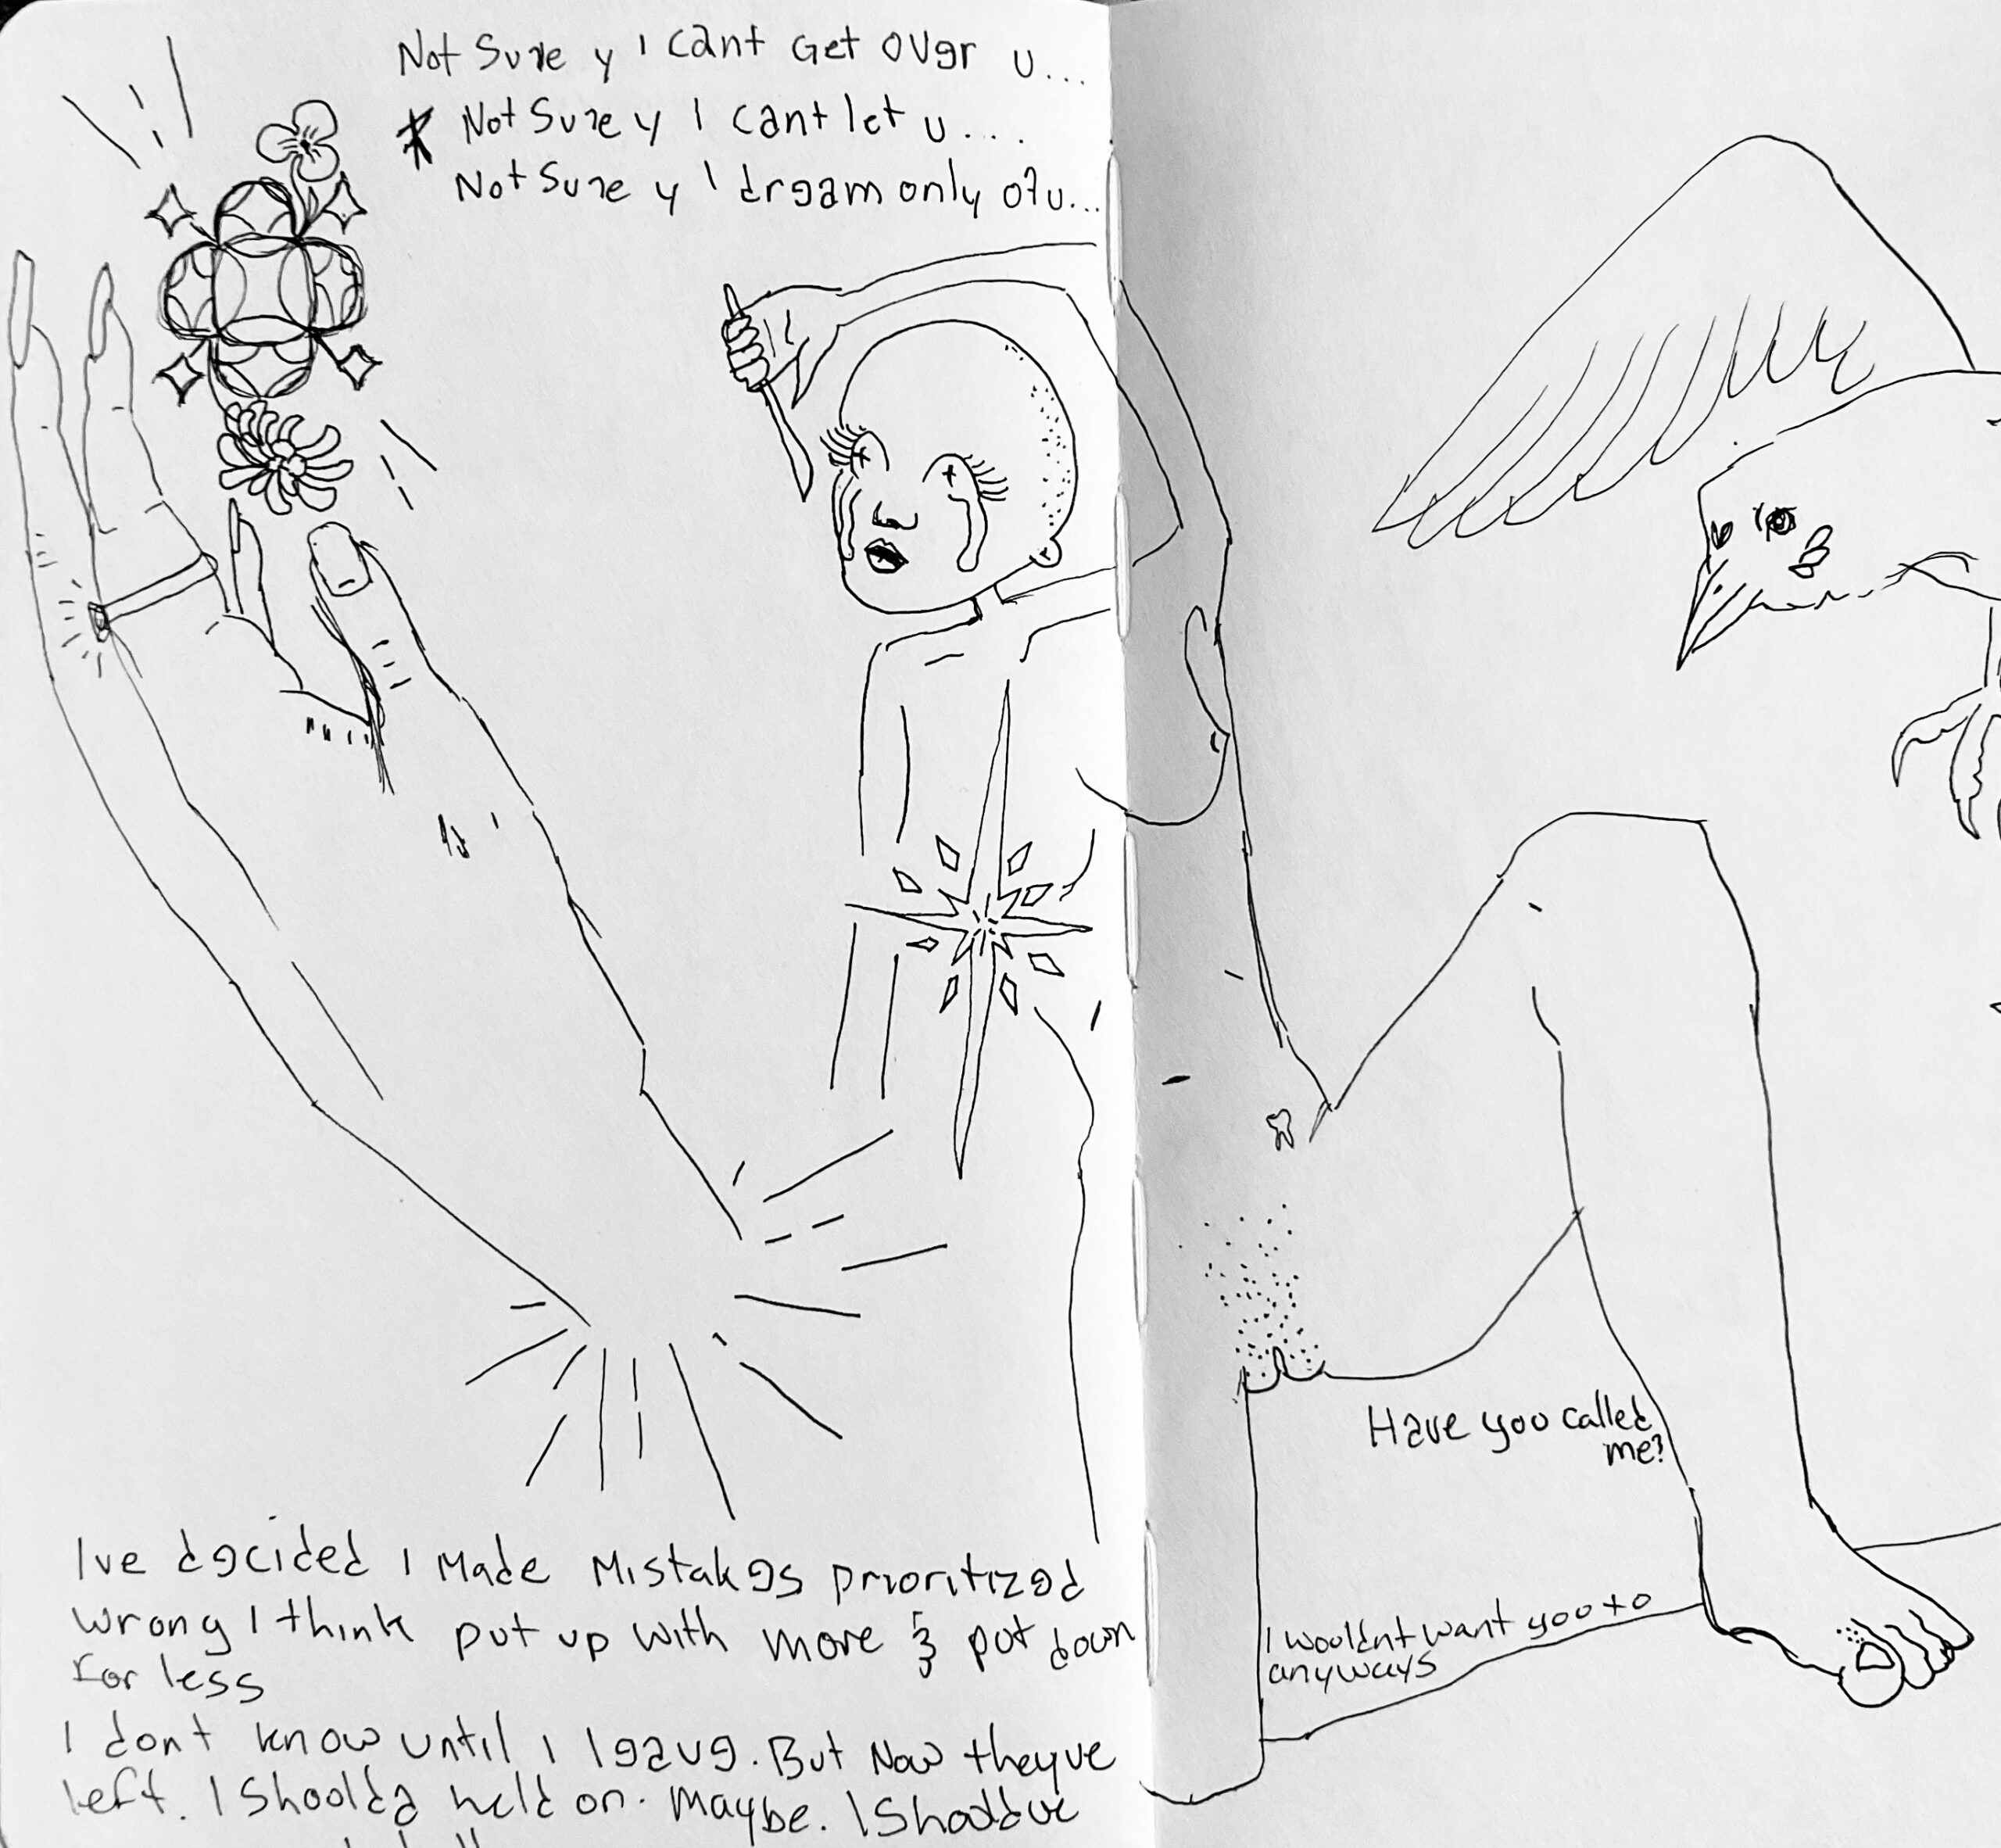 Not Sure y I cant Get over u...
* Not Sure y I cant let u....
Not Sure y I dream only of u...
Have you called
me?
I wouldnt want you to
anyways
Ive decided I Made Mistakes prioritized
wrong I think put up with more & put down
For less
I dont know until I leave. But Now theyve
left. I Shoulda held on. Maybe. I Shouldve